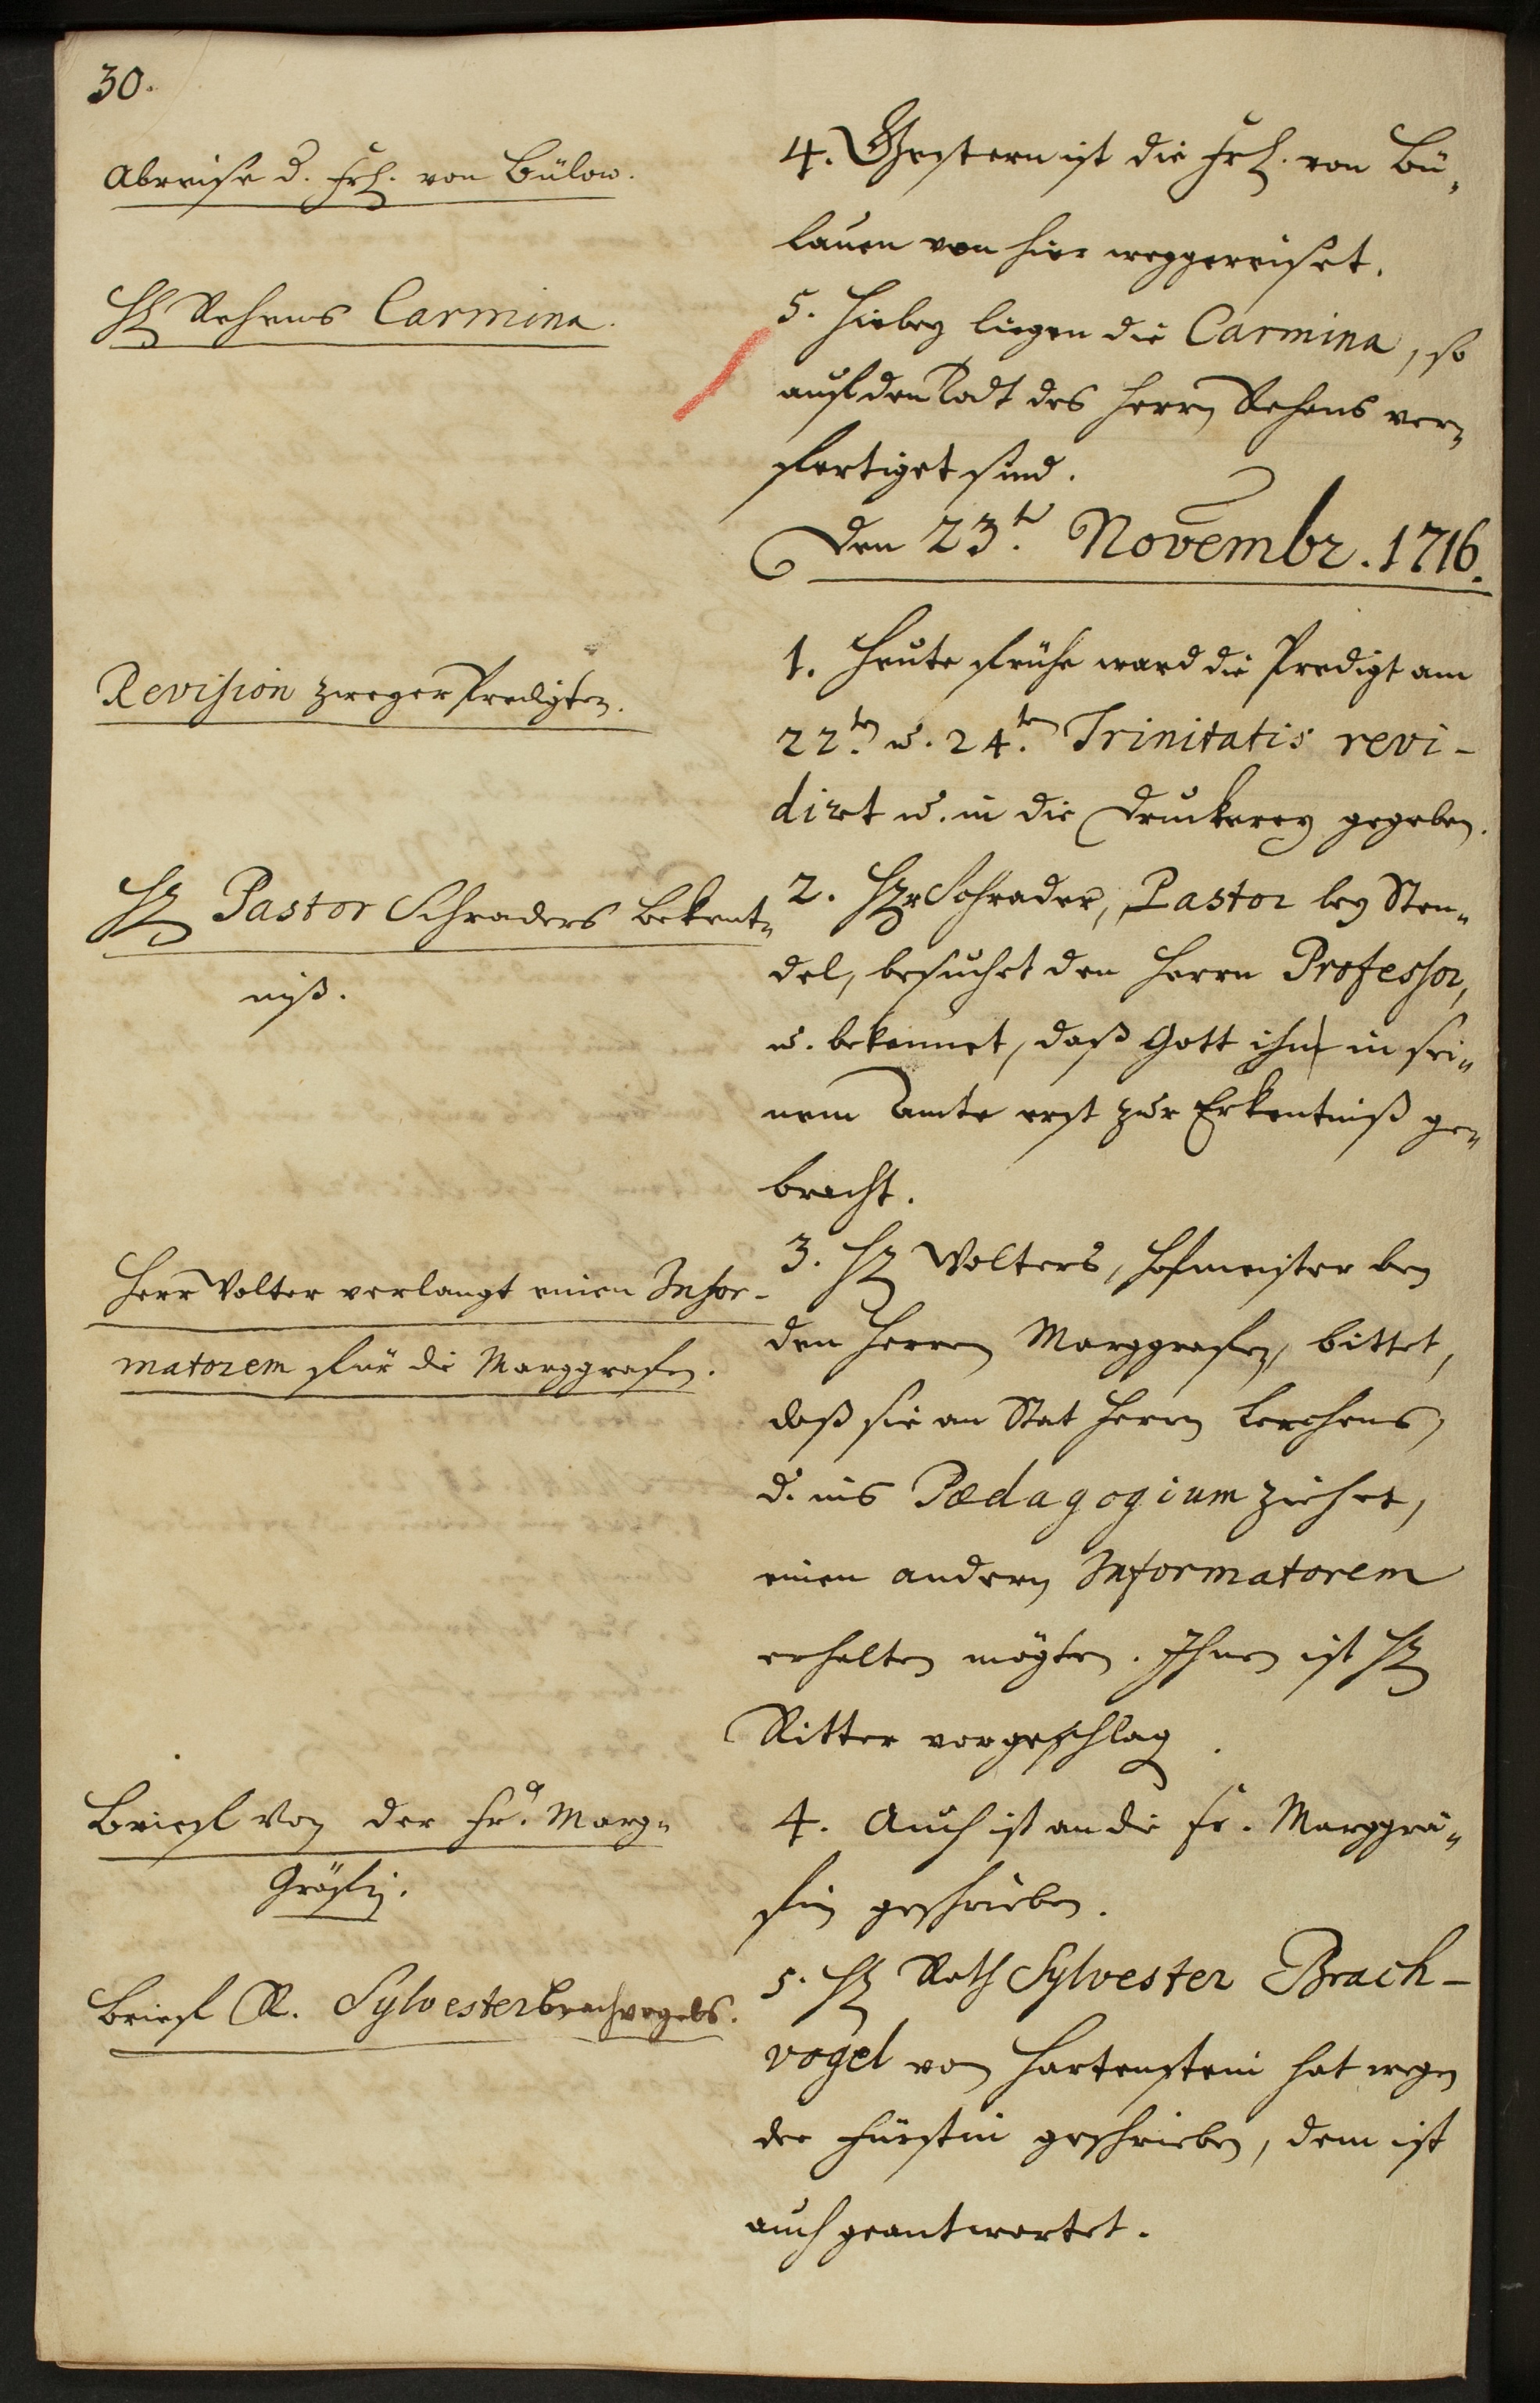 30.
Abreise d. Frl. von Bülow.
4. Gestern ist die Frl. von Bü-
lauen von hier weggereiset.
H. Rehens Carmina.
5. Hiebey liegen die Carmina, so
auf den Todt des Herrn Rehens ver-
fertiget sind.
Den 23t. Novembr. 1716.
Revision zweyer Predigten.
1. Heute frühe ward die Predigt am
22ten. u. 24ten. Trinitatis revi-
dirt u. in die Druckerey gegeben.
H. Pastor Schraders Bekent-
niß.
2. Hr Schrader, Pastor bey Sten-
del, besuchet den Herrn Professor,
u. bekennet, daß Gott ihn in sei-
nem Amte erst zur Erkentniß ge-
bracht.
Herr Volter verlangt einen Infor-
matorem für die Marggrafen.
3. H. Wolters, Hofmeister bey
den Herren Marggrafen, bittet,
daß sie an Stat Herrn Lerchens,
d. ins Pædagogium ziehet,
einen andern Informatorem
erhalten mögten. Ihnen ist H.
Ritter vorgeschlag.
Brief von der Fr. Marg-
Gräfin.
4. Auch ist an die Fr. Marggrä-
fin geschrieben.
Brief R. Sylvester Brachvogels.
5. H. Rath Sylvester Brach-
vogel von Hartenstein hat wegen
der Fürstin geschrieben, dem ist
auch geantwortet.